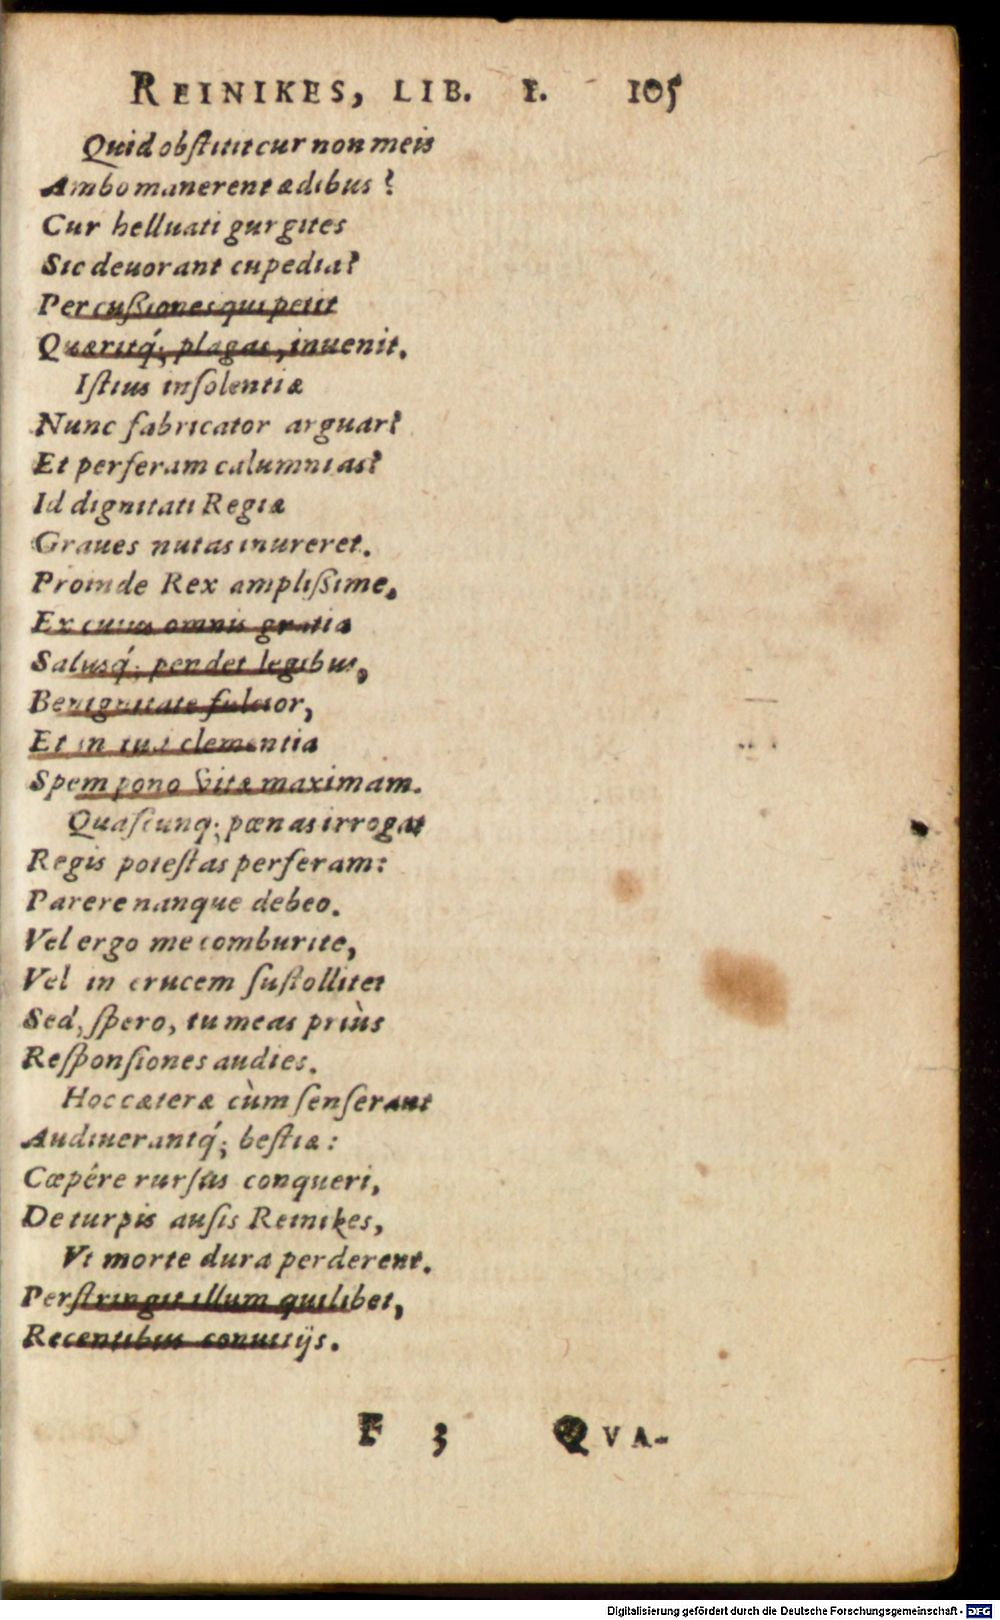 REINIKES, LIB. I. 105
Quid obſtitit cur non meis
Ambo manerent ædibus?
Cur helluati gurgites
Sic deuorant cupedia?
Percuſsiones qui petit
Quæritq́; plagas, inuenit.
Iſtius inſolentiæ
Nunc fabricator arguar?
Et perferam calumnias?
Id dignitati Regiæ
Graues nutas inureret.
Proinde Rex ampliſsime,
Ex cuius omnis gratia
Salusq́; pendet legibus,
Benignitate fulcior,
Et in tua clementia
Spem pono vitæ maximam.
Quaſcunq; pœnas irrogat
Regis poteſtas perferam:
Parere nanque debeo.
Vel ergo me comburite,
Vel in crucem ſuſtollite:
Sed, ſpero, tu meas priùs
Reſponſiones audies.
Hoc cæteræ cùm ſenſerant
Audiuerantq́; beſtiæ:
Cœpêre rurſus conqueri,
De turpis auſis Reinikes,
Vt morte dura perderent.
Perſtringit illum quilibet,
Recentibus conuitijs.
F 3 QVA-
Digitalisierung gefördert durch die Deutsche Forschungsgemeinschaft - DFG